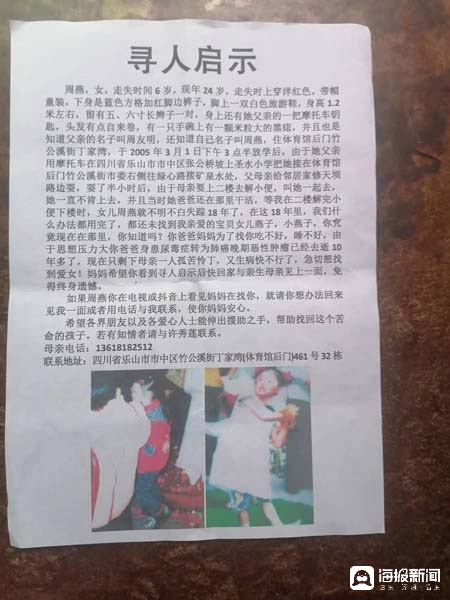 寻人启示
周燕，女，走失时间 6 岁，现年 24 岁，走失时上穿洋红色，带帽
童装，下身是蓝色方格加红脚边裤子，脚上一双白色旅游鞋，身高 1.2
米左右，留有五、六寸长辫子一对，身上还有她父亲的一把摩托车钥
匙，头发有点自来卷，有一只手碗上有一颗米粒大的黑痣，并且也是
知道父亲的名子叫周友明，还知道自己名子叫周燕，住体育馆后门竹
公溪街丁家湾，于 2005 年 3 月 1 日下午 3 点半放学后，由于她父亲
用摩托车在四川省乐山市市中区张公桥坡上圣水小学把她接在体育馆
后门竹公溪街市委右侧往绿心路接矿泉水处，父母亲给邻居家修天坝
路边耍，耍了半小时后，由于母亲要上二楼去解小便，叫她一起去，
她一直不肯上去，并且当时她爸爸还在那里干活，等我在二楼解完小
便下楼时，女儿周燕就不明不白失踪 18 年了，在这 18 年里，我们什
么办法都用完了，都还未找到我亲爱的宝贝女儿燕子，小燕子，你究
竟现在在那里，你知道吗？你爸爸妈妈为了找你吃不好，睡不好，由
于思想压力大你爸爸身患尿毒症转为肺癌晚期恶性肿瘤已经去逝 10
年多了，现在只剩下母亲一人孤苦怜丁，又生病快不行了，急切想找
到爱女！妈妈希望你看到寻人启示后快回家与亲生母亲见上一面，免
得终身遗憾。
如果周燕你在电视或抖音上看见妈妈在找你，就请你想办法回来
见我一面或者用电话与我联系，使你妈妈安心。
希望各界朋友以及各爱心人士能伸出援助之手，帮助找回这个苦
命的孩子。若有知情者请与许秀莲联系。
母亲电话：13618182512
联系地址：四川省乐山市市中区竹公溪街丁家湾(体育馆后门)461 号 32 栋
海报新闻